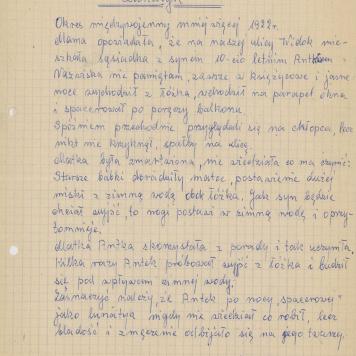 Lunatyk
Okres międzywojenny mniej więcej 1922 r.
Mama opowiadała, że na naszej ulicy Widok mie-
szkała sąsiadka z synem 10-cio letnim Antkiem.
Nazwiska nie pamiętam, zawsze w księżycowe i jasne
noce wychodził z łóżka, wchodził na parapet okna
i spacerował po poręczy balkonu.
Spóźnieni przechodnie przyglądali się na chłopca, lecz
nikt nie krzyknął, spadłby na ulicę.
Matka była zmartwiona, nie wiedziała co ma czynić.
Starsze babki doradziły matce, postawienie dużej
miski z zimną wodą obok łóżka, jak syn będzie
chciał wyjść, to nogi postawi w zimną wodę i oprzy-
tomnieje.
Matka Antka skorzystała z porady i tak uczyniła.
Kilka razy Antek próbował wyjść z łóżka i budził
się pod wpływem zimnej wody.
Zaznaczyć należy, że Antek po nocy, spacerowej
jako lunatyk nigdy nie wiedział co robił, lecz
bladość i zmęczenie odbijało się na jego twarzy.